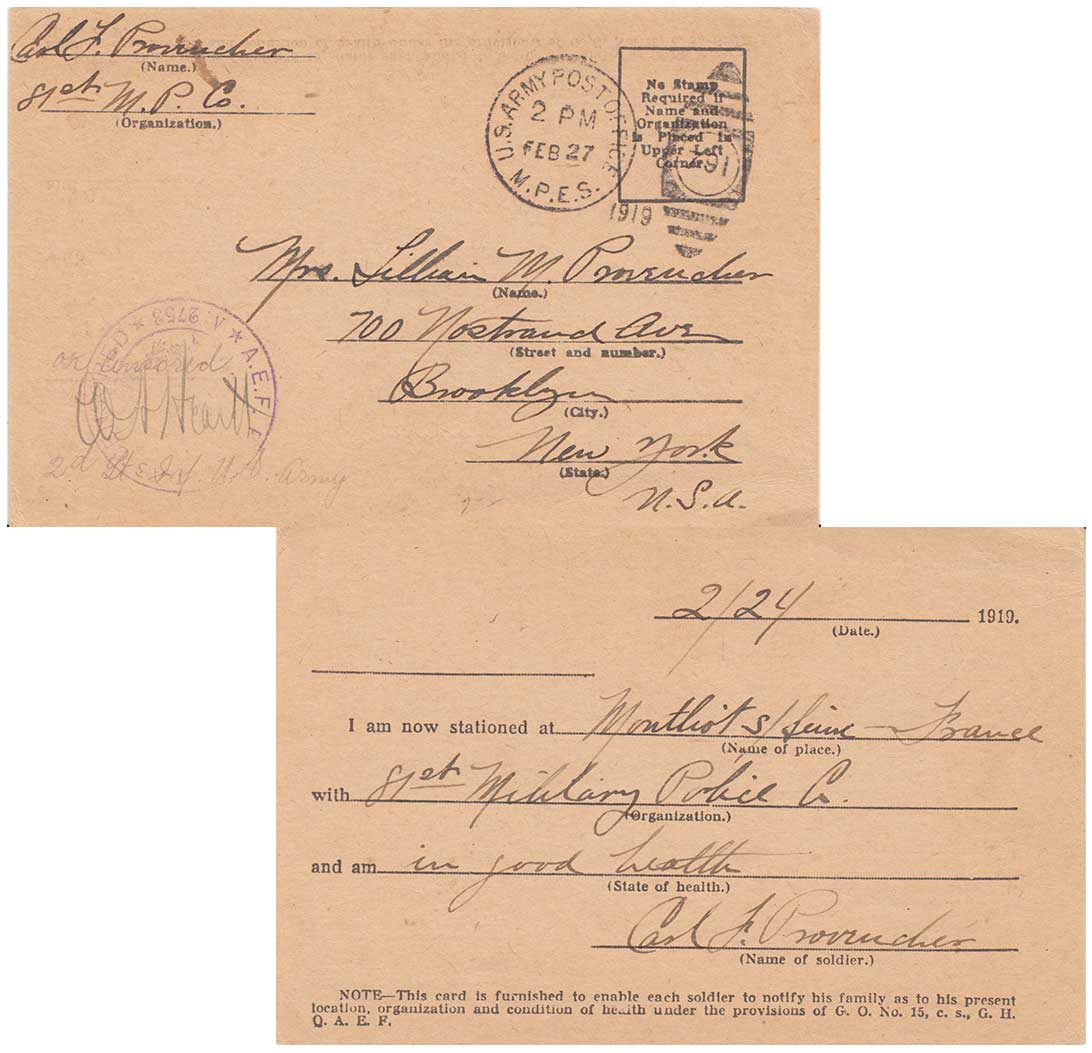 Carl F. Provencher
(Name.)
81st M. P. Co.
(Organization.)
U.S. ARMY POST OFFICE
2 PM
FEB 27
M.P.E.S.
1919
No Stamp
Required if
Name and
Organization
is Placed in
Upper Left
Corner.
791
Mrs. Lillian M. Provencher
(Name.)
700 Nostrand Ave
(Street and number.)
Brooklyn
(City.)
New York
(State.)
U.S.A.
A.E.F.
A. 2753
censored
2d Lt Inf. U.S. Army
2/24 1919.
(Date.)
I am now stationed at Montliot s/Seine - France
(Name of place.)
with 81st Military Police Co.
(Organization.)
and am in good health
(State of health.)
Carl F. Provencher
(Name of soldier.)
NOTE—This card is furnished to enable each soldier to notify his family as to his present
location, organization and condition of health under the provisions of G. O. No. 15, c. s., G. H.
Q. A. E. F.